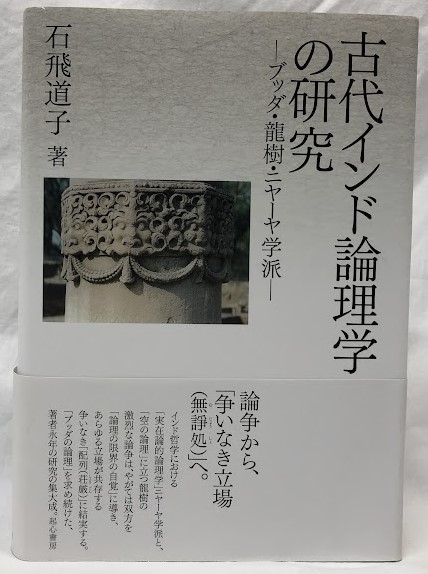 古代インド論理学
の研究
―ブッダ・龍樹・ニヤーヤ学派―
石飛道子 著
論争から、
「争いなき立場
(無諍処)」へ。
インド哲学における
「実在論的論理学」ニヤーヤ学派と、
「空の論理」に立つ龍樹の
激烈な論争は、やがては双方を
「論理の限界の自覚」に導き、
あらゆる立場が共存する
争いなき「配列(荘厳)」に結実する。
「ブッダの論理」を求め続けた、
著者永年の研究の集大成。起心書房